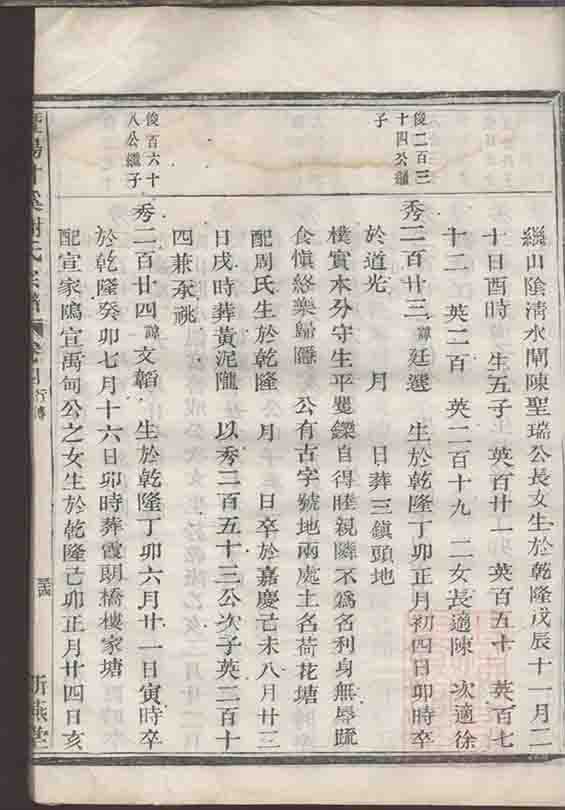 繼山陰清水閘陳聖瑞公長女生於乾隆戊辰十一月二
十日酉時 生五子 英百廿一 英百五十 英百七
十二 英二百 英二百十九 二女長適陳 次適徐
俊二百三
十四公繼
子
秀二百廿三 諱廷選 生於乾隆丁卯正月初四日卯時卒
於道光 月 日葬三鎮頭地
樸實本分守生平矍鑠自得睦親隣不為名利身無辱蔬
食愜終樂歸隱 公有古字號地兩處土名荷花塘
配周氏生於乾隆 月 日卒於嘉慶己未八月廿三
日戌時葬黃泥隴 以秀二百五十三公次子英二百十
四兼承祧
俊百六十
八公繼子
秀二百廿四 諱文韜 生於乾隆丁卯六月廿一日寅時卒
於乾隆癸卯七月十六日卯時葬霞朗橋樓家塘
配宣家隖宣禹甸公之女生於乾隆己卯正月廿四日亥
謝氏宗譜 行傳